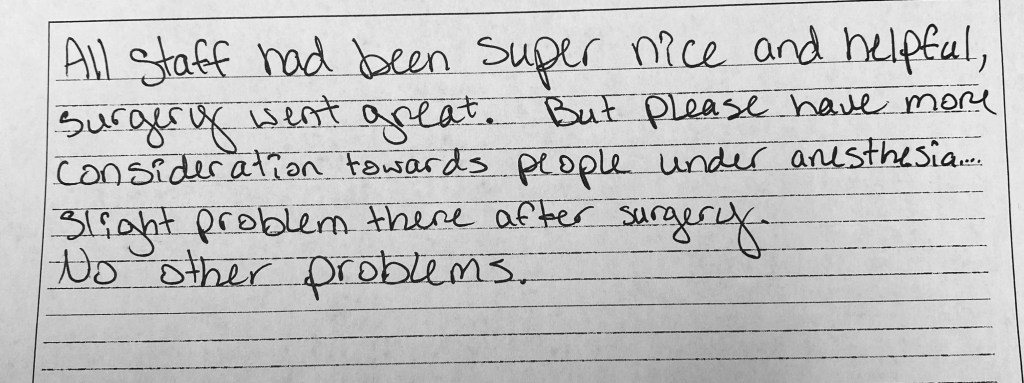 All staff had been super nice and helpful,
surgery went great. But please have more
consideration towards people under anesthesia....
slight problem there after surgery.
No other problems.